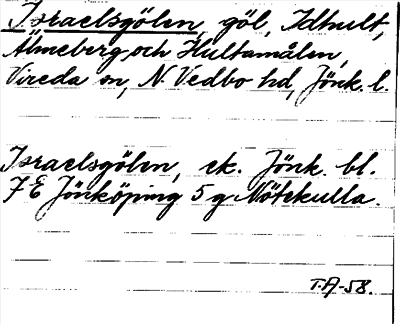 Israelsgölen, göl, Idhult,
Älmeberg och Hultamålen,
Vireda sn, N. Vedbo hd, Jönk. l.
Israelsgölen, ek. Jönk. bl.
7 E Jönköping 5 g Nötekulla.
T.A-58.